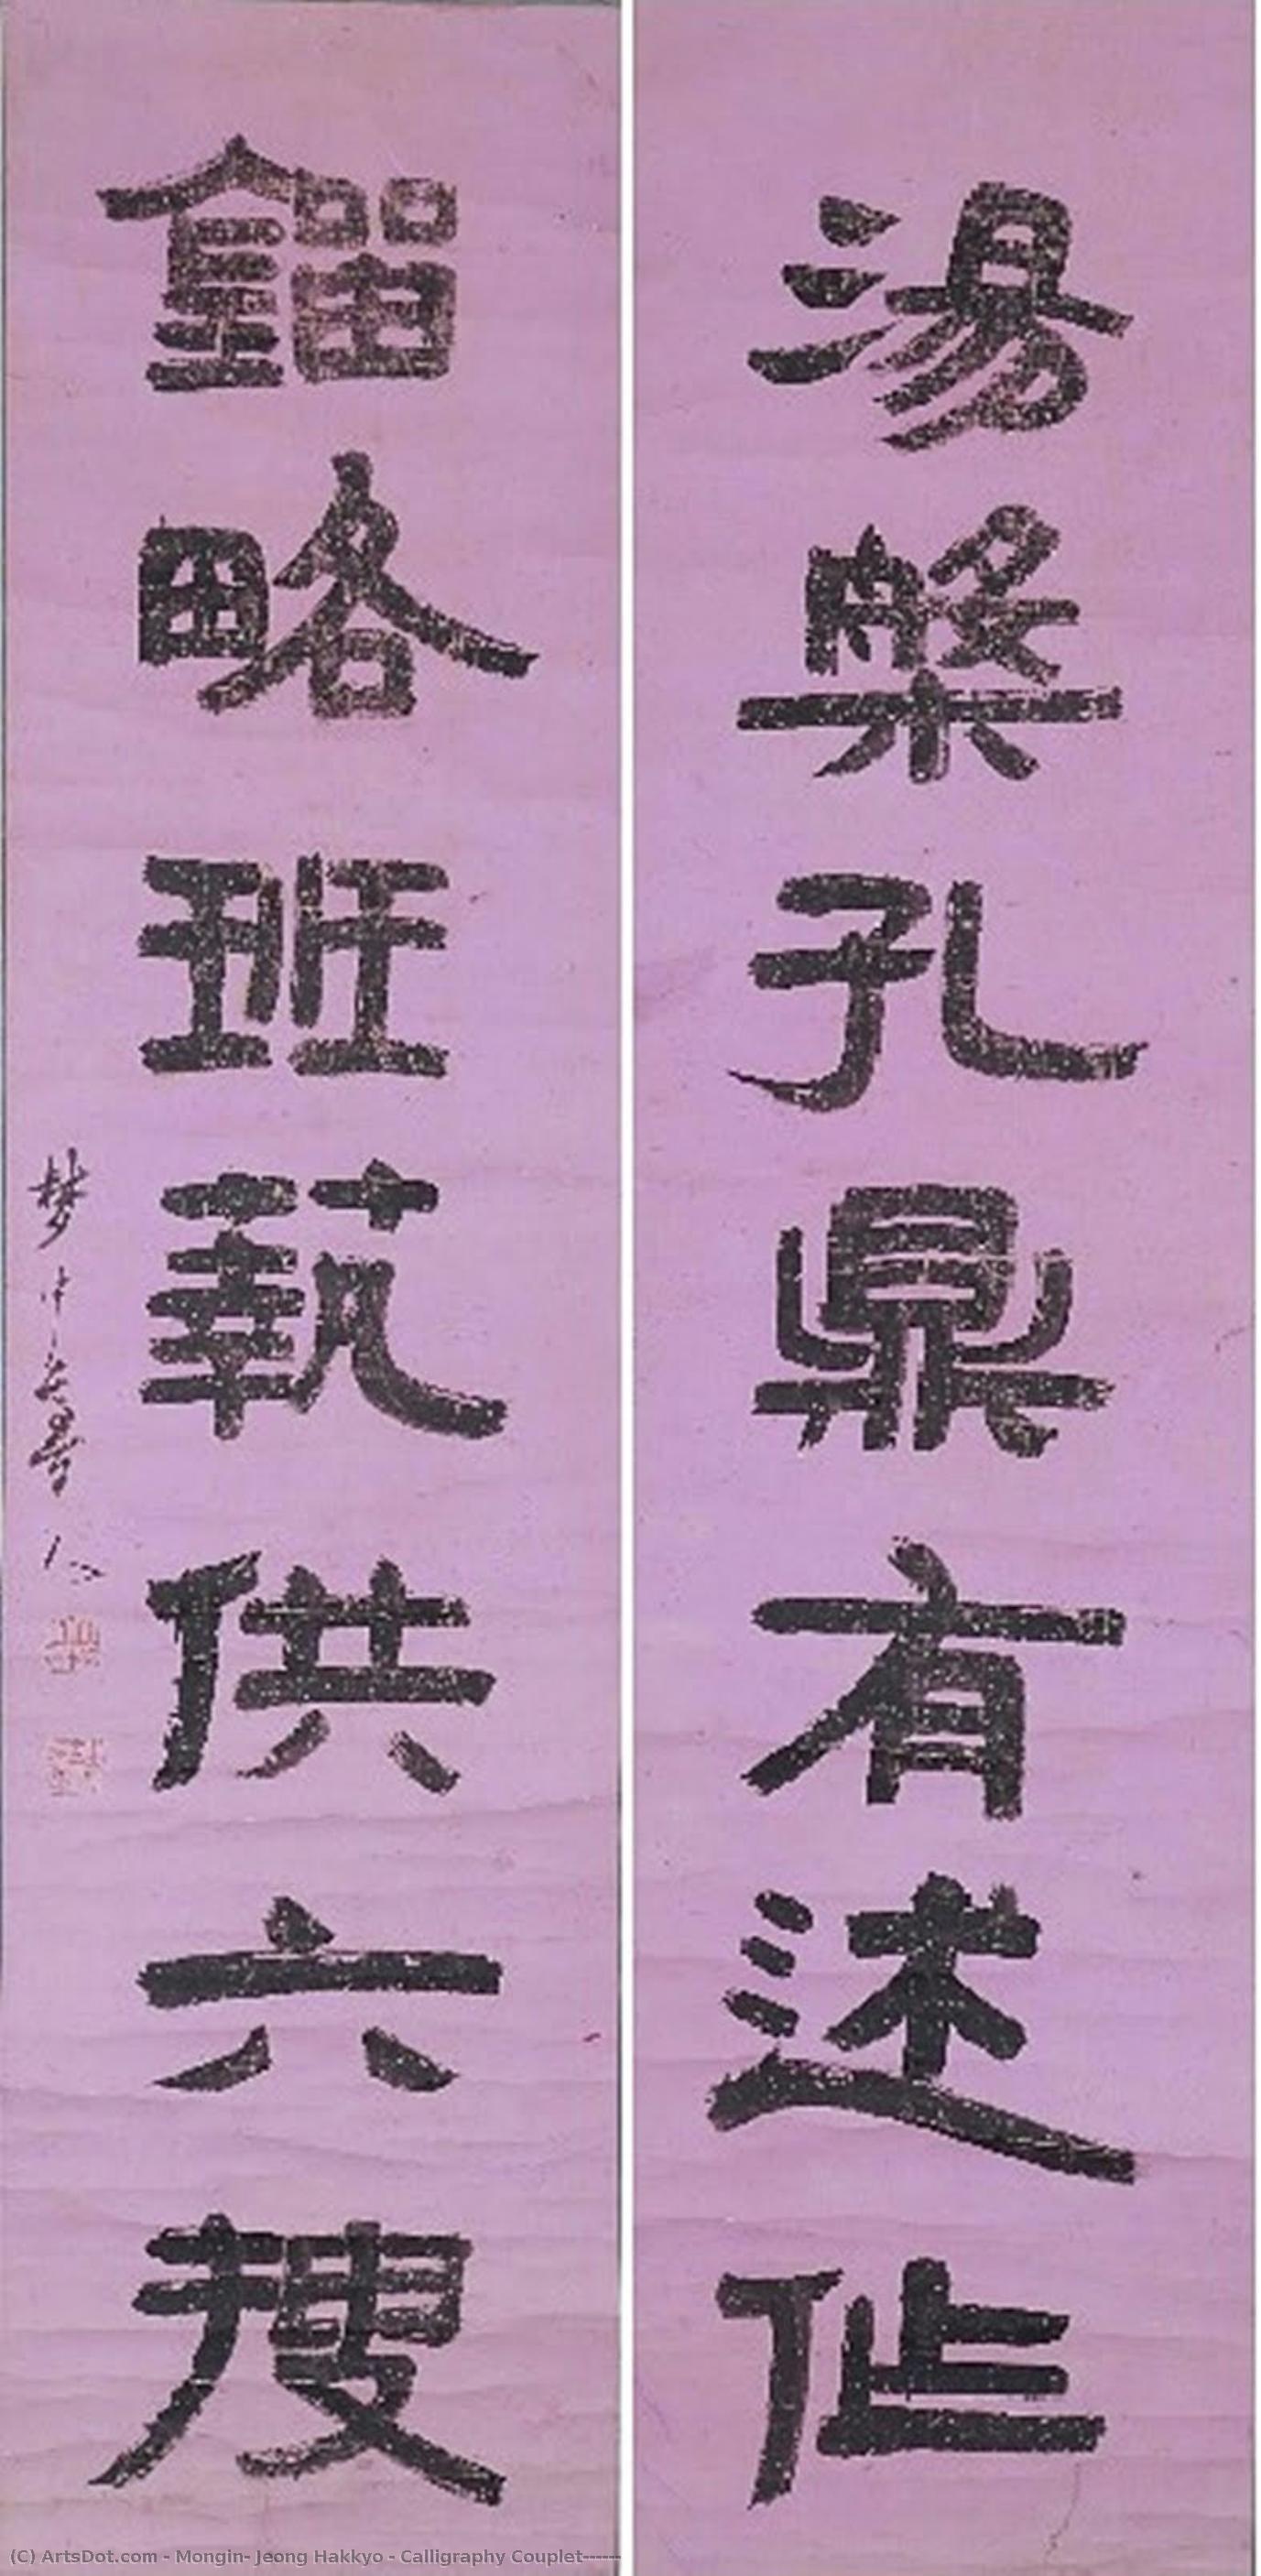 湯槃孔鼎有述作
鎦略班蓺供六搜
梦中夢人
(C) ArtsDot.com - Mongin- Jeong Hakkyo - Calligraphy Couplet------